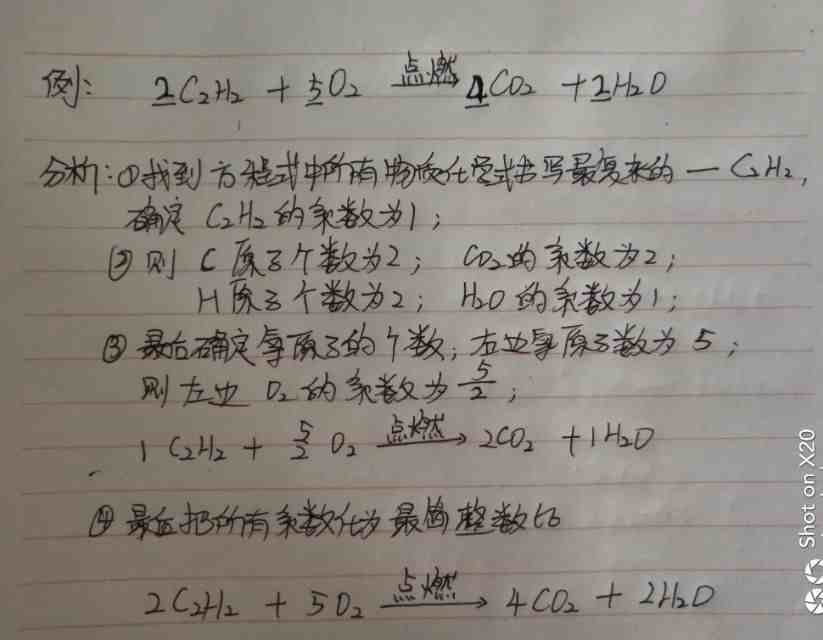 例: 2C₂H₂ + 5O₂ 点燃→ 4CO₂ + 2H₂O
分析:①找到方程式中所有物质化学式书写最复杂的一C₂H₂,
确定 C₂H₂的系数为1;
②则 C原子个数为2; CO₂的系数为2;
H原子个数为2; H₂O的系数为1;
③最后确定氧原子的个数;左边氧原子数为5;
则左边 O₂的系数为5/2;
1C₂H₂ + 5/2 O₂ 点燃→ 2CO₂ + 1H₂O
④最后把所有系数化为最简整数比
2C₂H₂ + 5O₂ 点燃→ 4CO₂ + 2H₂O
Shot on X20